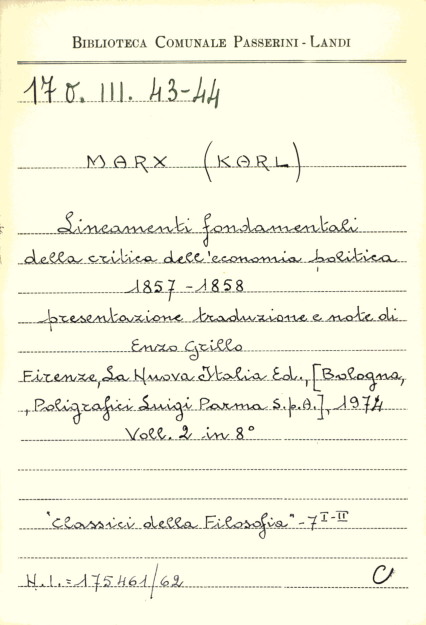 BIBLIOTECA COMUNALE PASSERINI - LANDI
17 O. III. 43-44
MARX (KARL)
Lineamenti fondamentali
della critica dell'economia politica
1857 - 1858
presentazione traduzione e note di
Enzo Grillo
Firenze, La Nuova Italia Ed., [Bologna,
, Poligrafici Luigi Parma S.p.A.], 1974
Voll. 2 in 8°
"Classici della Filosofia" - 7 I-II
N.I. = 175461/62
C